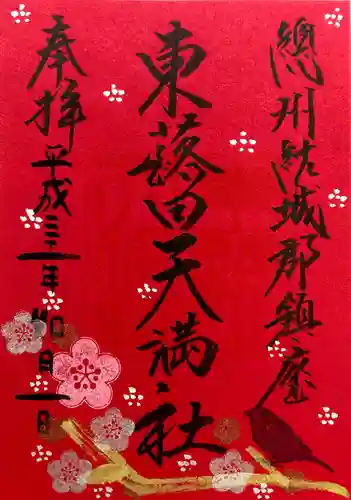 總州結城郡鎮座
東蕗田天満社
奉拝 平成三十一年四月一日